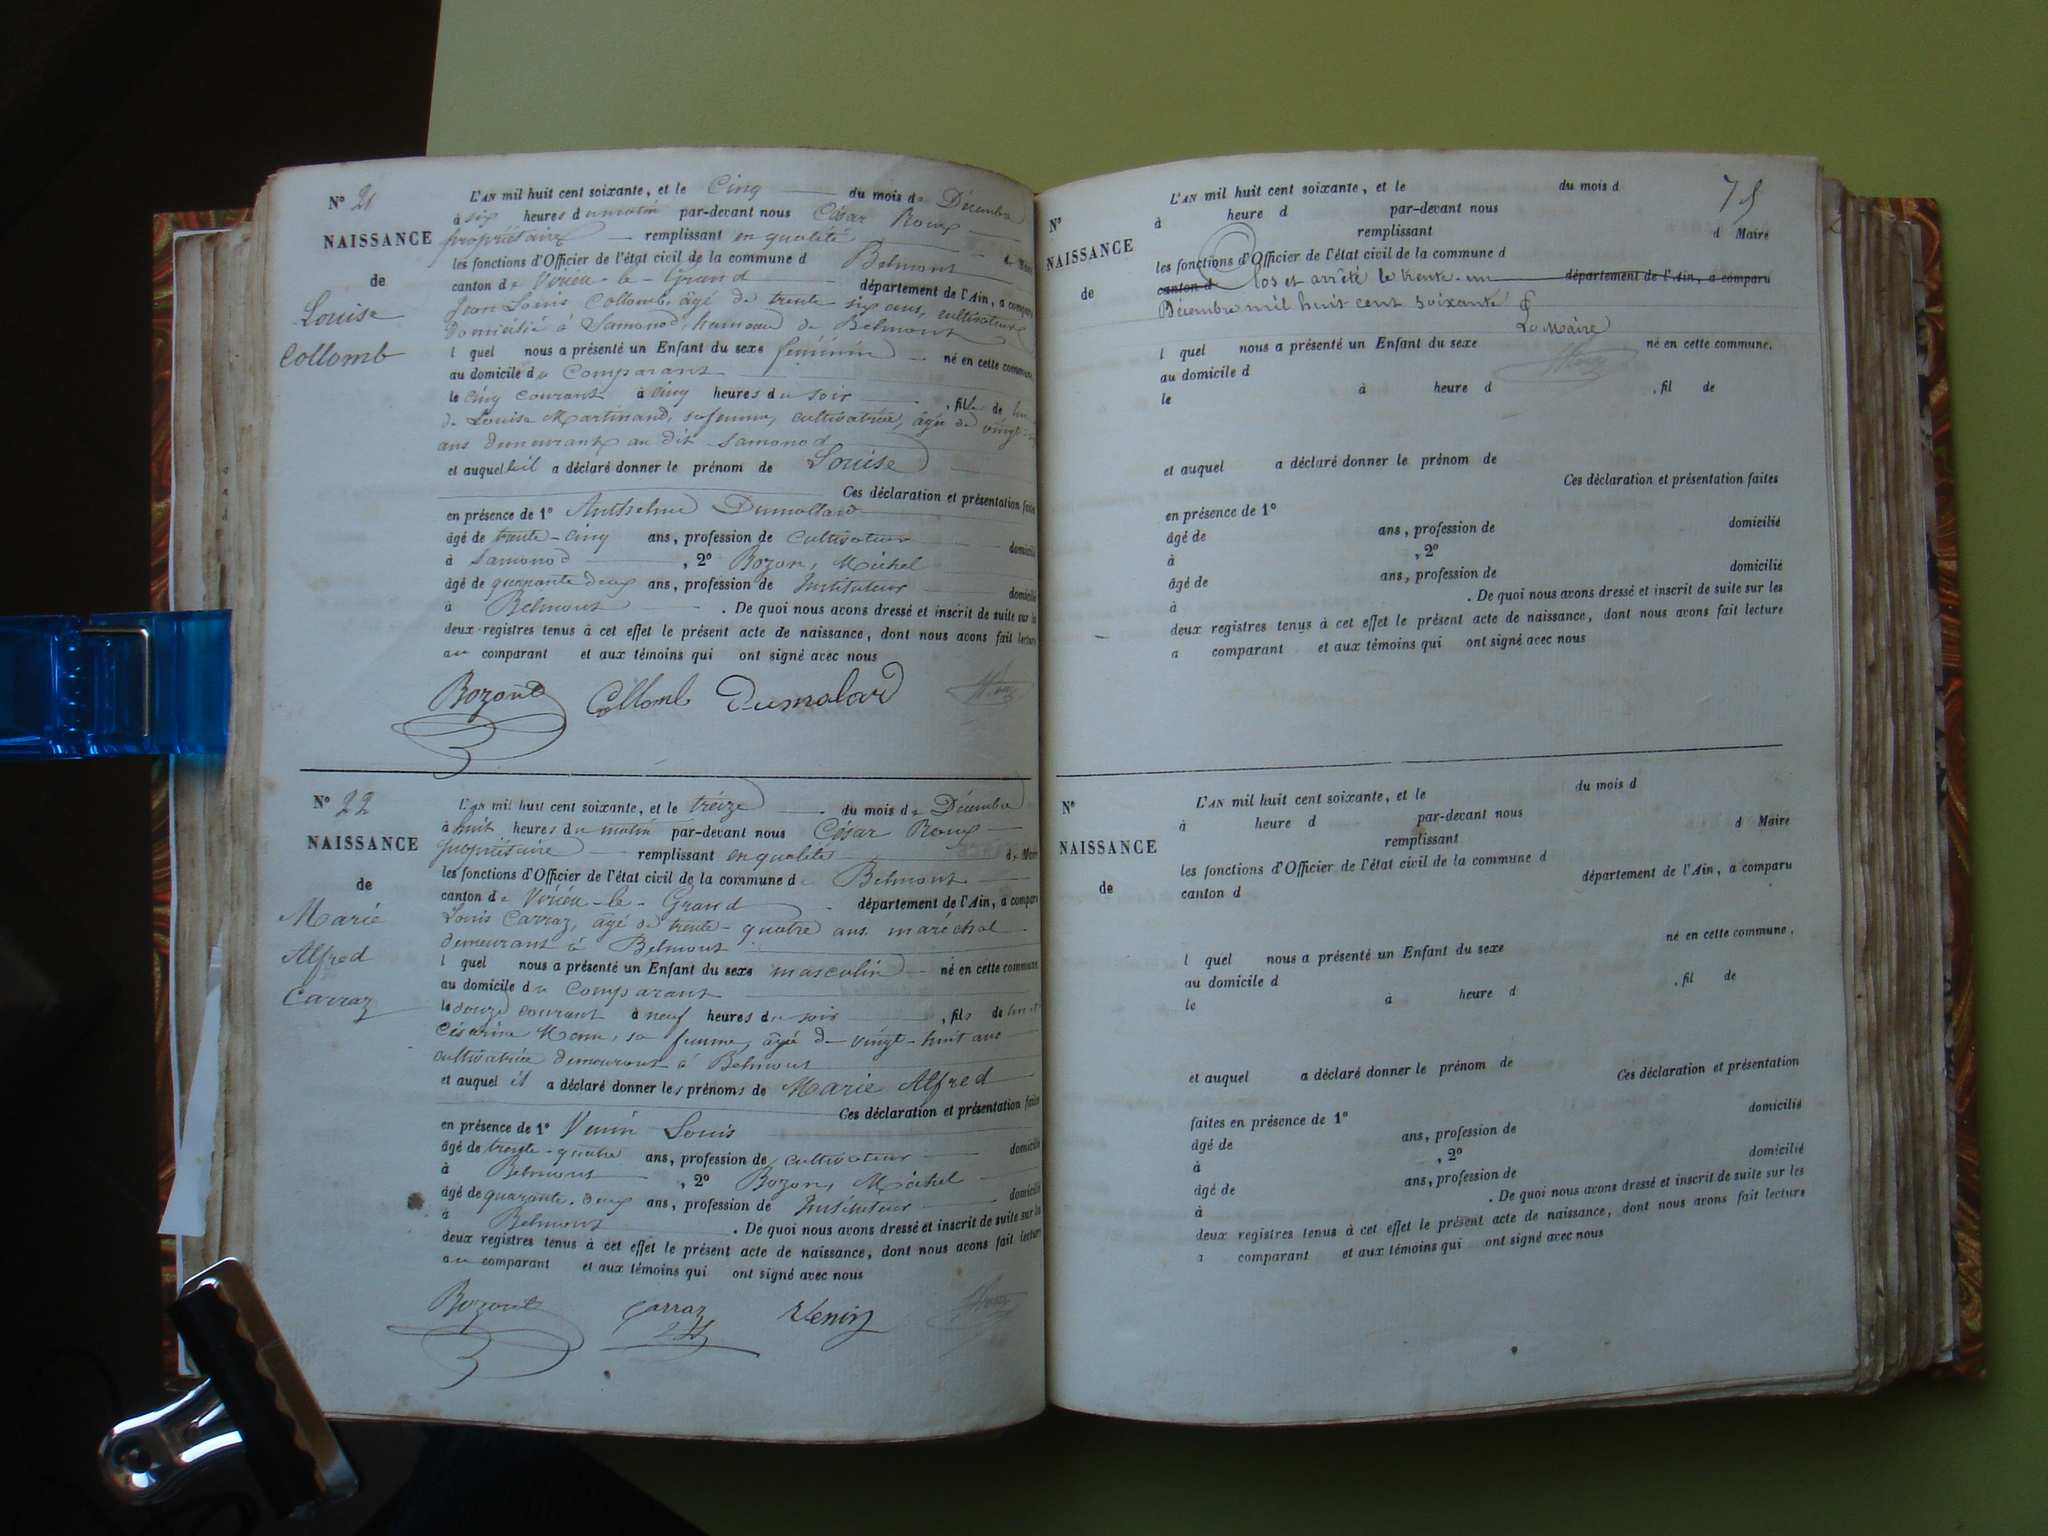 N° 21
NAISSANCE
de
Louise
Collomb
L'AN mil huit cent soixante, et le Cinq du mois de Décembre
à six heures du matin par-devant nous César Roux
propriétaire remplissant en qualité de Maire
les fonctions d'Officier de l'état civil de la commune d Belmont
canton de Virieu-le-Grand département de l'Ain, a comparu
Jean Louis Collomb, âgé de trente six ans, cultivateur
domicilié à Samonod, hameau de Belmont
l quel nous a présenté un Enfant du sexe féminin né en cette commune,
au domicile du Comparant
le cinq courant à cinq heures du soir , fille de lui
de Louise Martinand, sa femme, cultivatrice, âgée de vingt
ans demeurant au dit Samonod
et auquel il a déclaré donner le prénom de Louise
Ces déclaration et présentation faites
en présence de 1° Anthelme Dumollard
âgé de trente-cinq ans, profession de Cultivateur domicilié
à Samonod , 2° Bozon, Michel
âgé de quarante deux ans, profession de Instituteur domicilié
à Belmont . De quoi nous avons dressé et inscrit de suite sur les
deux registres tenus à cet effet le présent acte de naissance, dont nous avons fait lecture
au comparant et aux témoins qui ont signé avec nous
Collomb Dumolard
N° 22
NAISSANCE
de
Marie
Alfred
Carraz
L'AN mil huit cent soixante, et le treize du mois de Décembre
à huit heures du matin par-devant nous César Roux
propriétaire remplissant en qualité de Maire
les fonctions d'Officier de l'état civil de la commune de Belmont
canton de Virieu-le-Grand département de l'Ain, a comparu
Louis Carraz, âgé de trente-quatre ans maréchal
demeurant à Belmont
l quel nous a présenté un Enfant du sexe masculin né en cette commune
au domicile du Comparant
le douze courant à neuf heures du soir , fils de lui et
Césarine sa femme, âgée de vingt-huit ans
cultivatrice demeurant à Belmont
et auquel il a déclaré donner les prénoms de Marie Alfred
Ces déclaration et présentation faites
en présence de 1° Venin Louis
âgé de trente-quatre ans, profession de cultivateur domicilié
à Belmont , 2° Bozon, Michel
âgé de quarante-deux ans, profession de Instituteur domicilié
à Belmont . De quoi nous avons dressé et inscrit de suite sur les
deux registres tenus à cet effet le présent acte de naissance, dont nous avons fait lecture
au comparant et aux témoins qui ont signé avec nous
Carraz Venin
75
N°
NAISSANCE
de
L'AN mil huit cent soixante, et le du mois d
à heure d par-devant nous
remplissant d Maire
les fonctions d'Officier de l'état civil de la commune d
canton d Clos et arrêté le trente-un département de l'Ain, a comparu
Décembre mil huit cent soixante
Le Maire
l quel nous a présenté un Enfant du sexe né en cette commune,
au domicile d
le à heure d , fil de
et auquel a déclaré donner le prénom de
Ces déclaration et présentation faites
en présence de 1°
âgé de ans, profession de domicilié
à , 2°
âgé de ans, profession de domicilié
à . De quoi nous avons dressé et inscrit de suite sur les
deux registres tenus à cet effet le présent acte de naissance, dont nous avons fait lecture
a comparant et aux témoins qui ont signé avec nous
N°
NAISSANCE
de
L'AN mil huit cent soixante, et le du mois d
à heure d par-devant nous
remplissant d Maire
les fonctions d'Officier de l'état civil de la commune d
canton d département de l'Ain, a comparu
l quel nous a présenté un Enfant du sexe né en cette commune,
au domicile d
le à heure d , fil de
et auquel a déclaré donner le prénom de
Ces déclaration et présentation
faites en présence de 1°
âgé de ans, profession de domicilié
à , 2°
âgé de ans, profession de domicilié
à . De quoi nous avons dressé et inscrit de suite sur les
deux registres tenus à cet effet le présent acte de naissance, dont nous avons fait lecture
a comparant et aux témoins qui ont signé avec nous